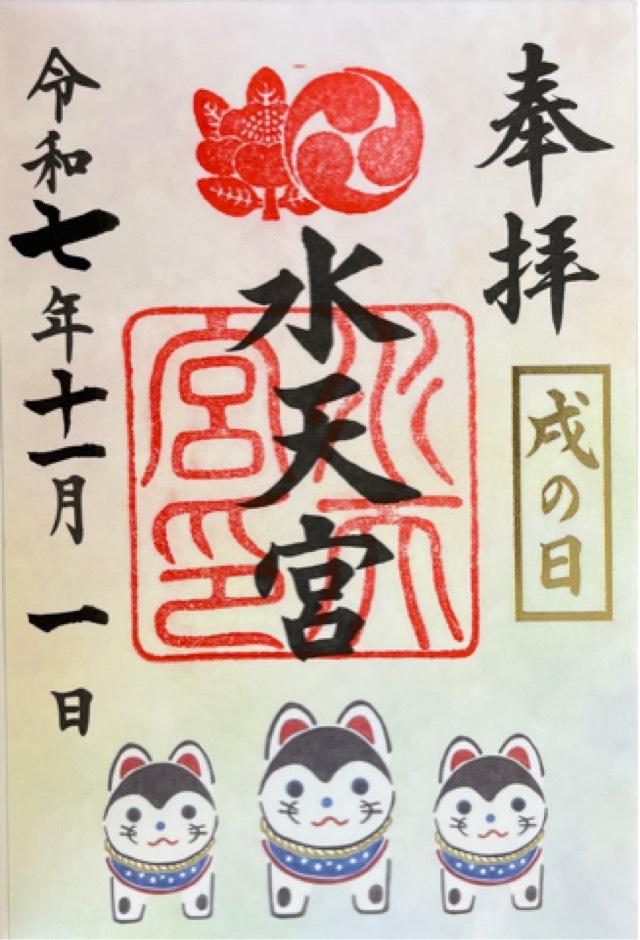 奉拝
戌の日
水天宮
水天宮印
令和七年十一月一日